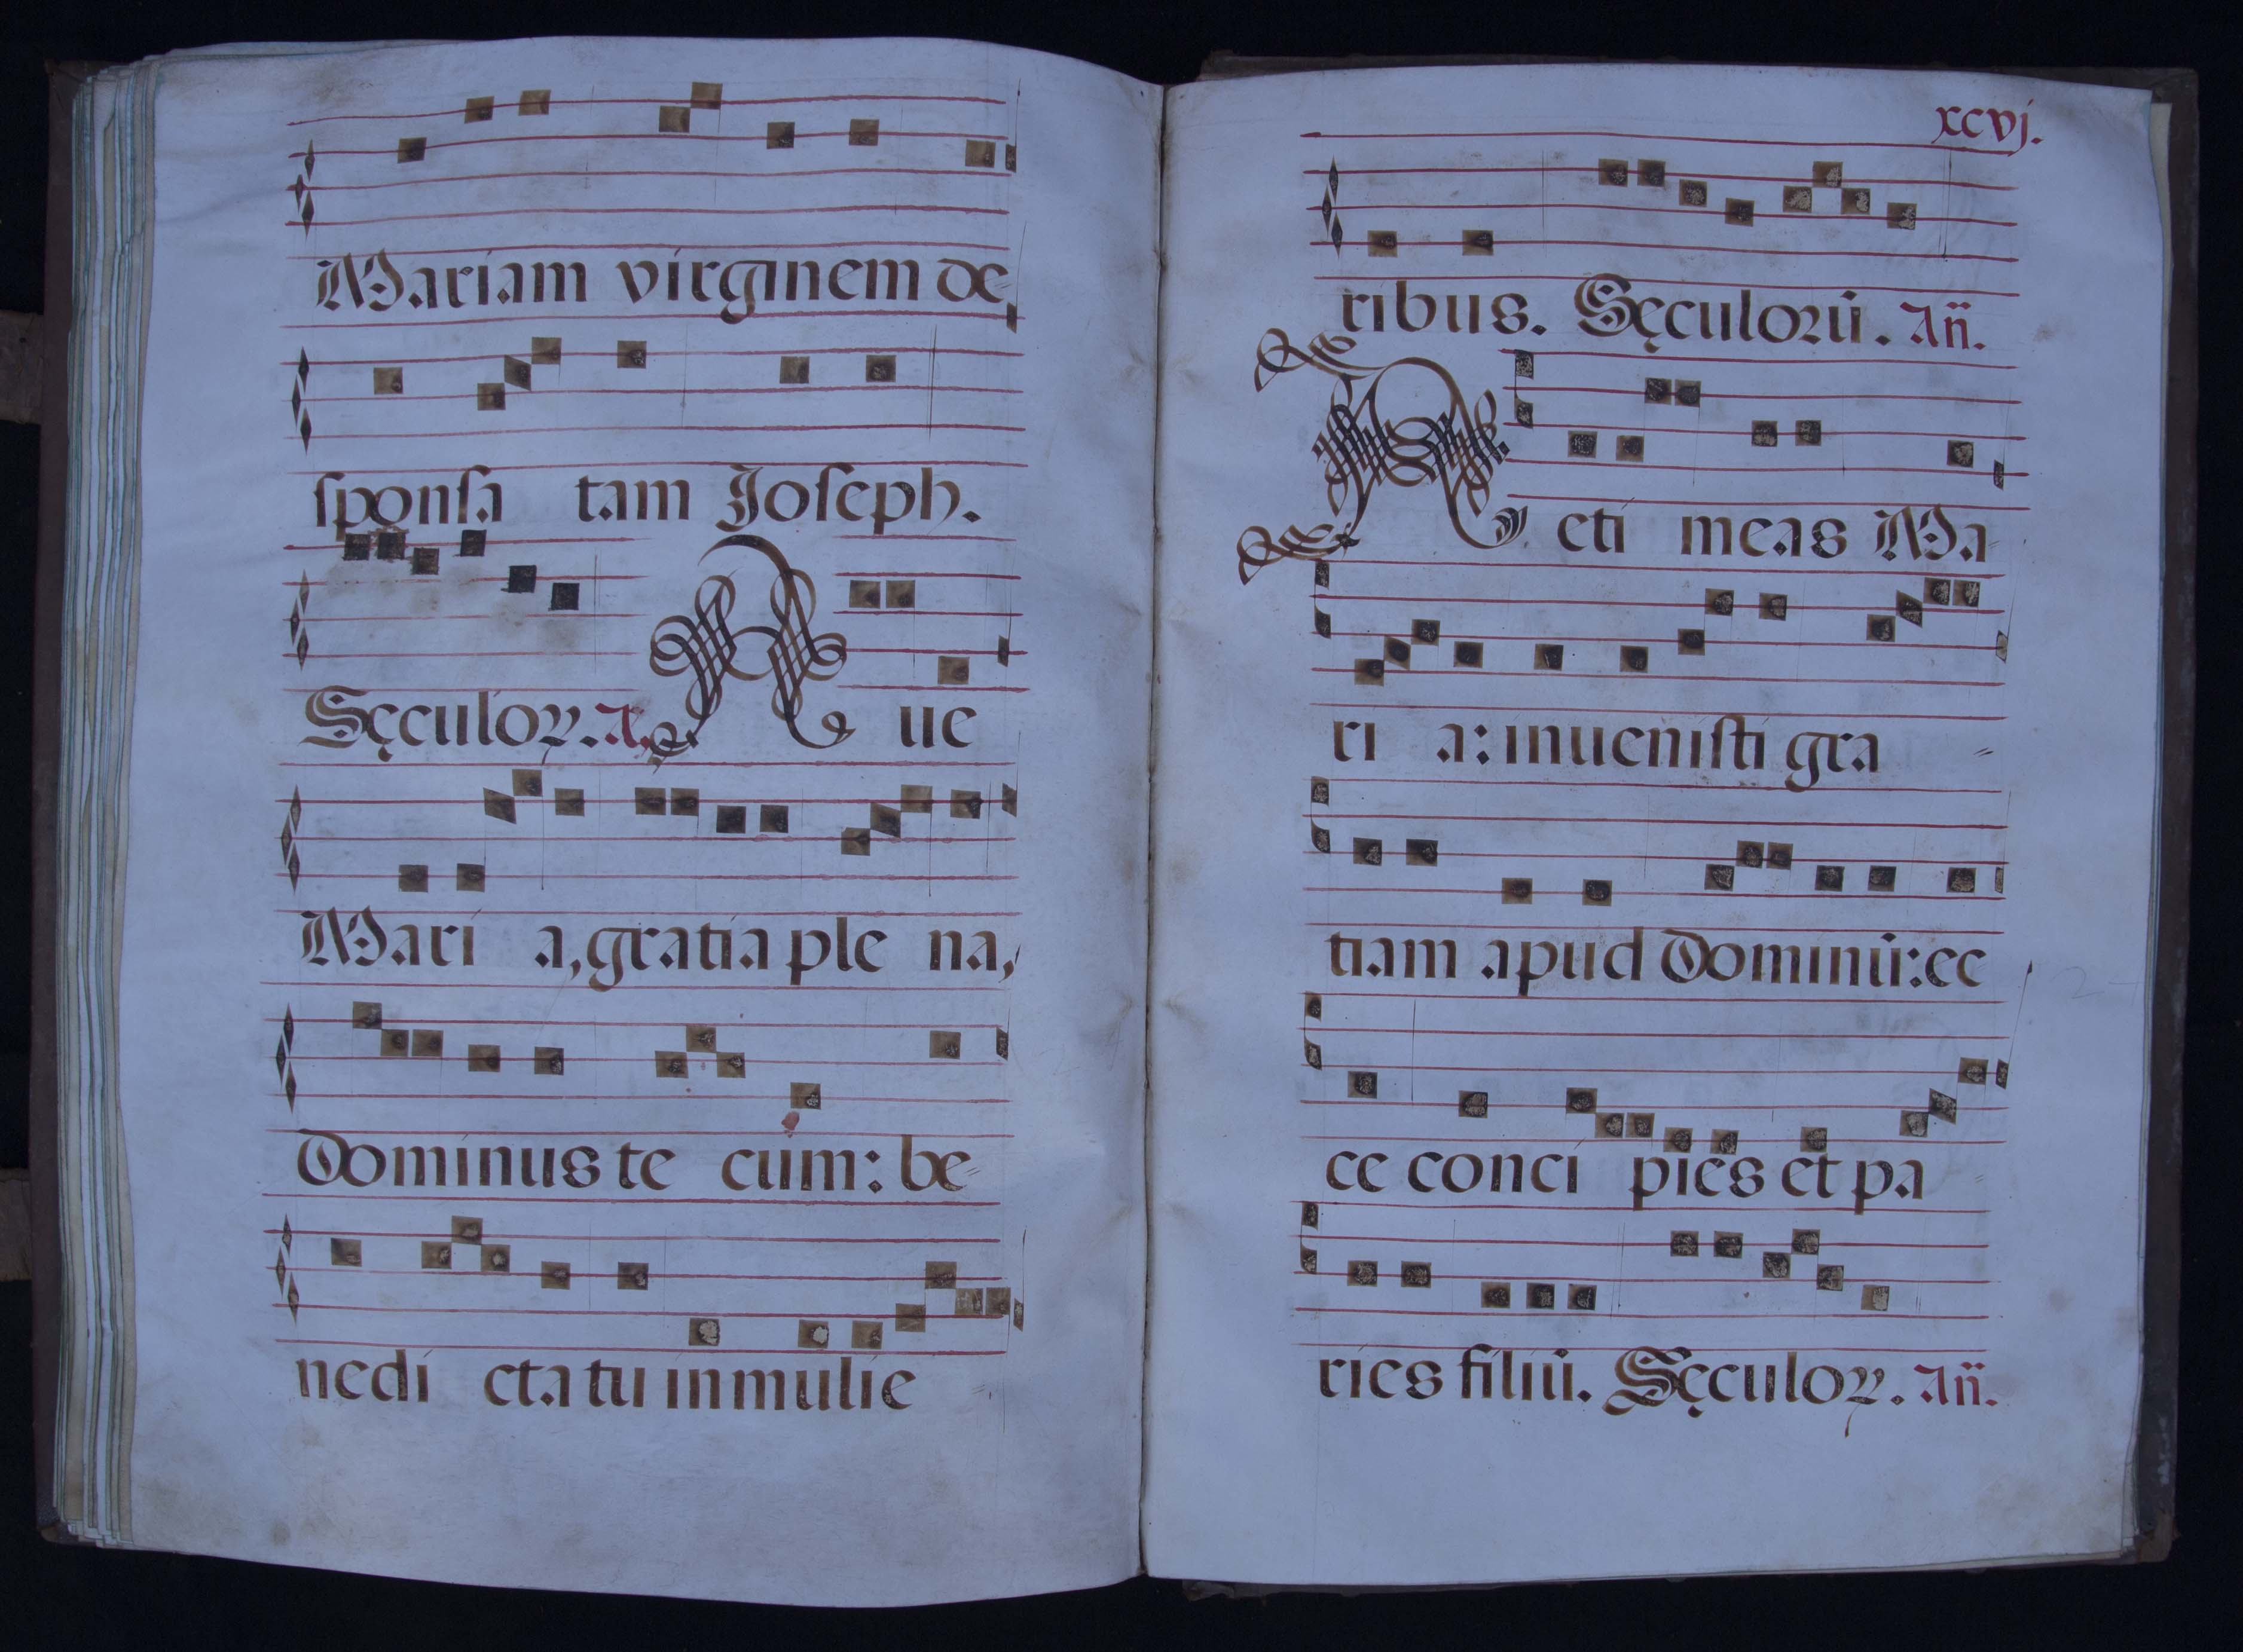 Mariam virginem de=
sponsa tam Joseph.
Sęculoꝝ. A. A ue
Mari a, gratia ple na,
Dominus te cum: be=
nedi cta tu in mulie
xcvj.
ribus. Sęculorū. Añ.
N eti meas Ma=
ri a: inuenisti gra =
tiam apud Dominū: ec
ce conci pies et pa
ries filiū. Sęculoꝝ. Añ.